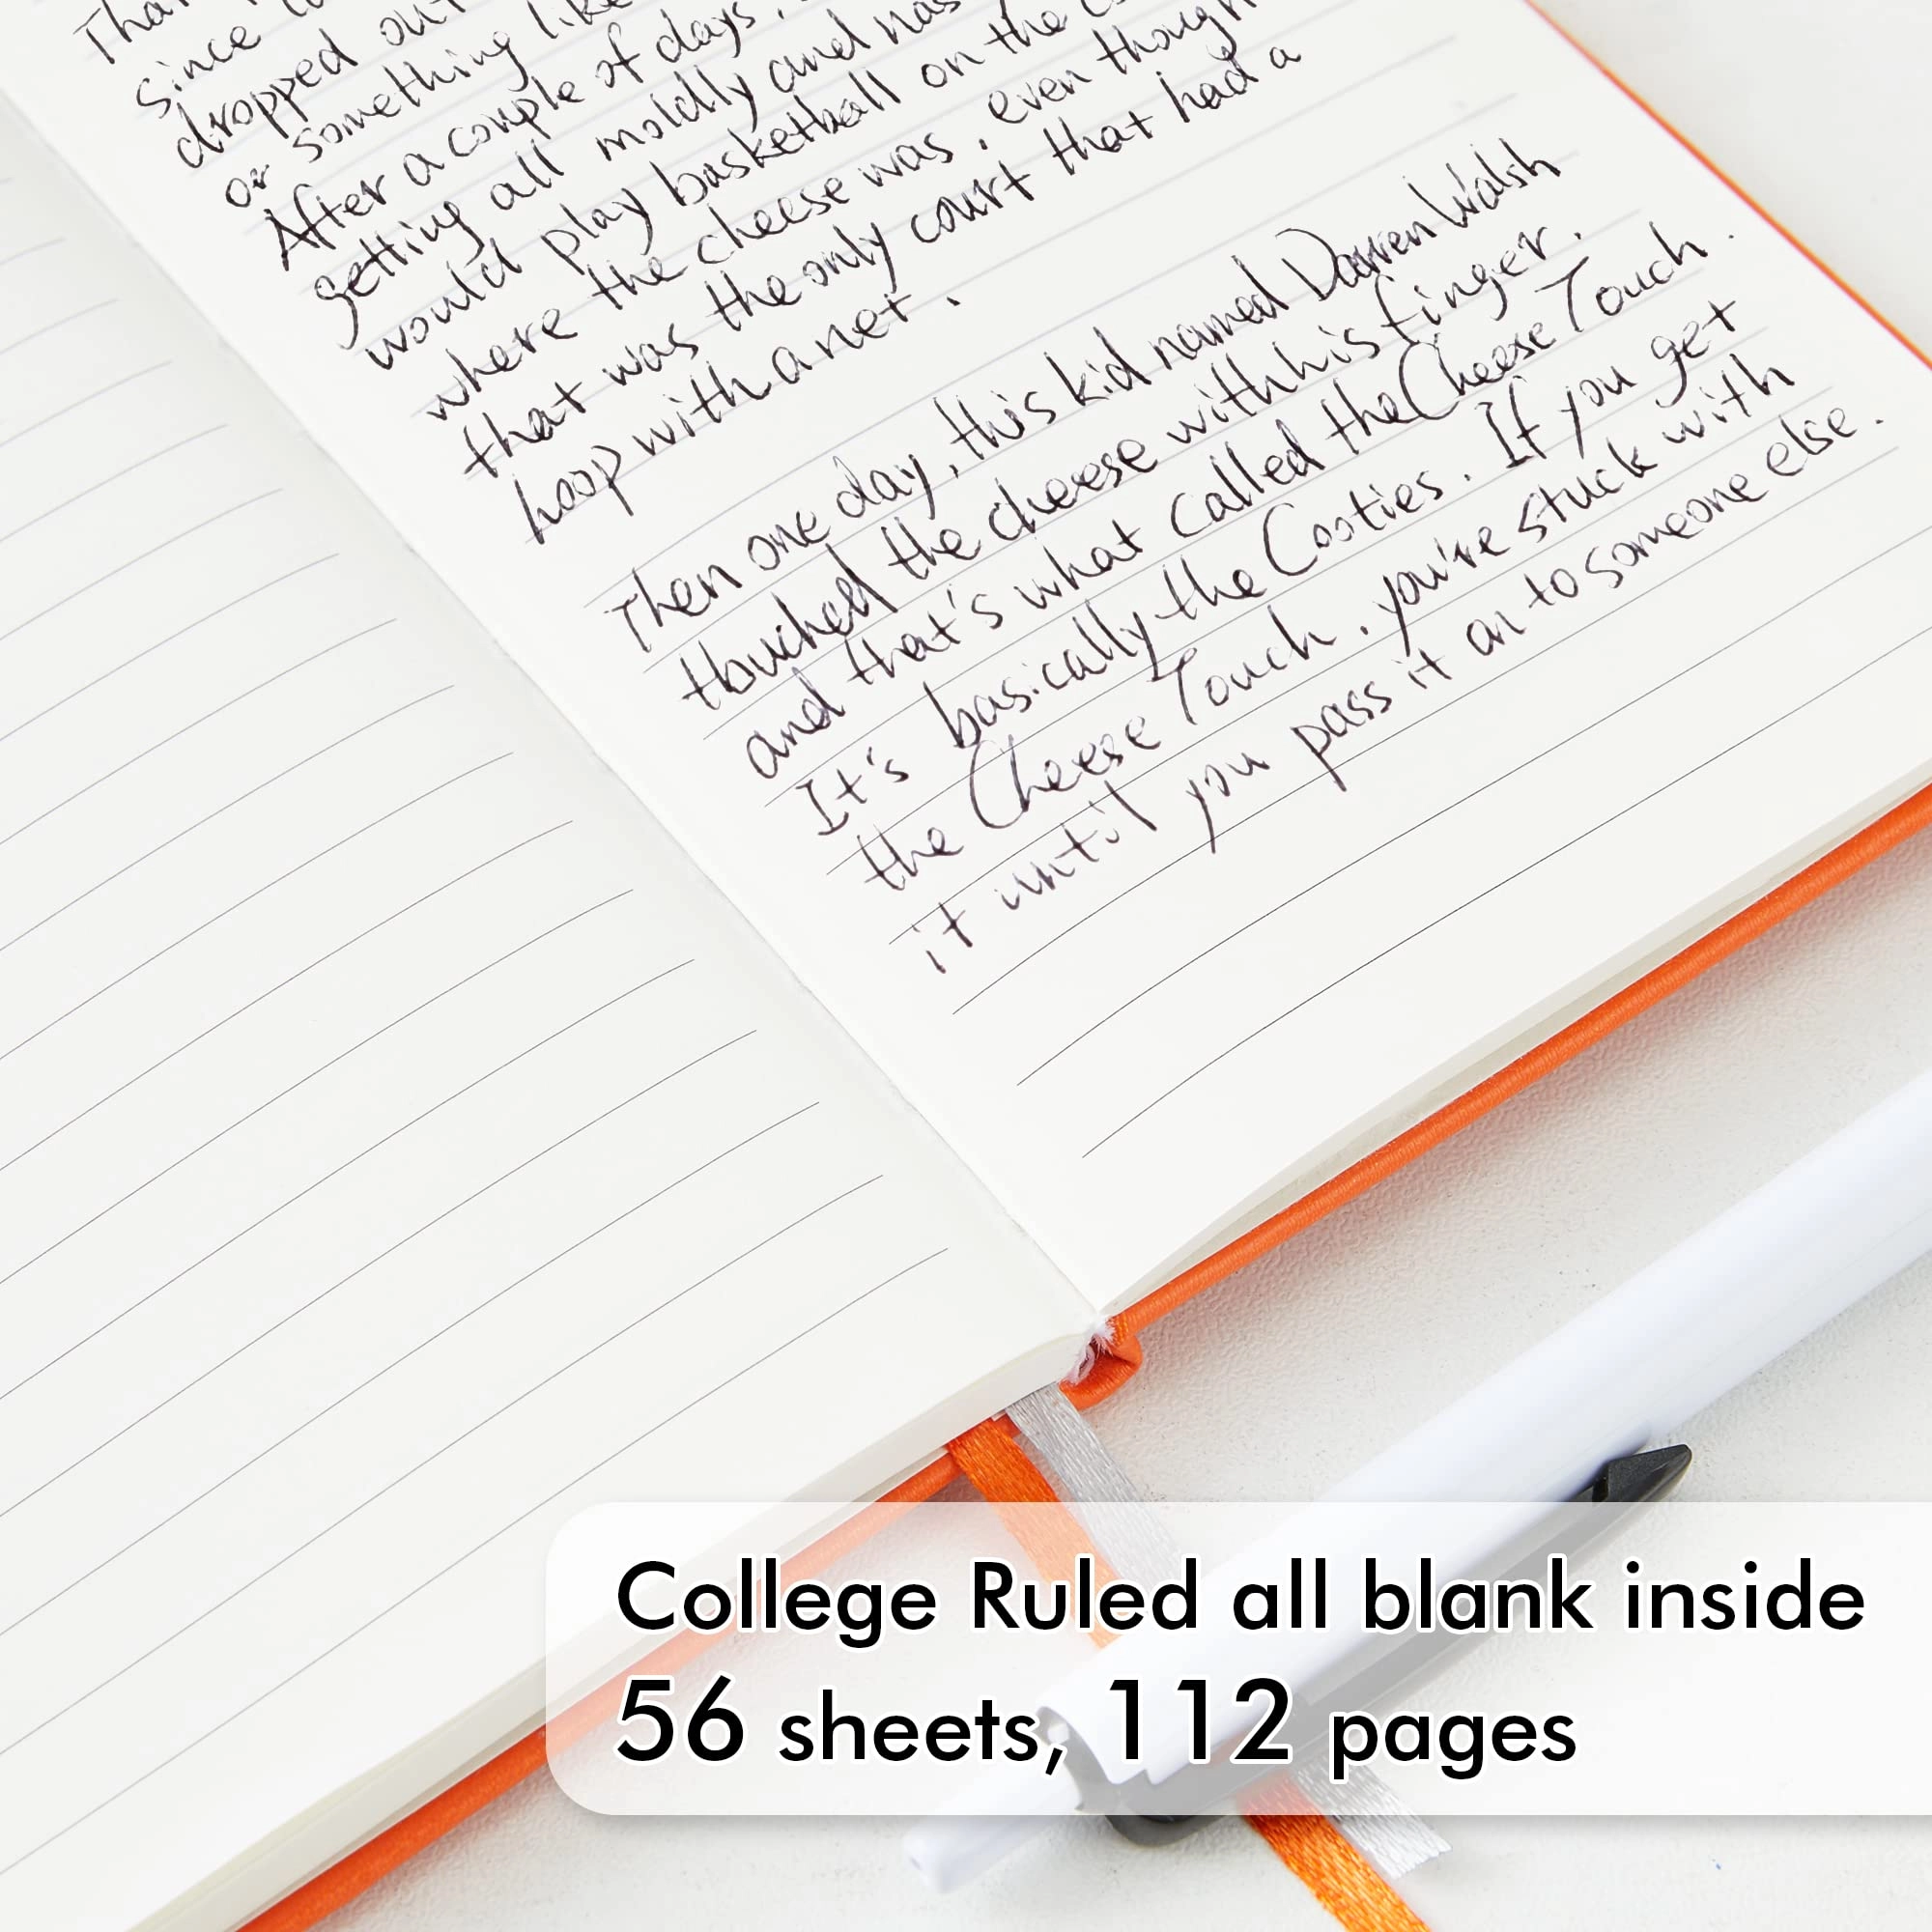 since
dropped out
or something like
After a couple of days,
getting all moldly and has
would play basketball on the
where the cheese was, even though
that was the only court that had a
hoop with a net.
Then one day, this kid named Darren Walsh
thuched the cheese with his finger.
and that's what called the Cheese Touch.
It's basically the Cooties. If you get
the Cheese Touch, you're stuck with
it until you pass it on to someone else.
College Ruled all blank inside
56 sheets, 112 pages